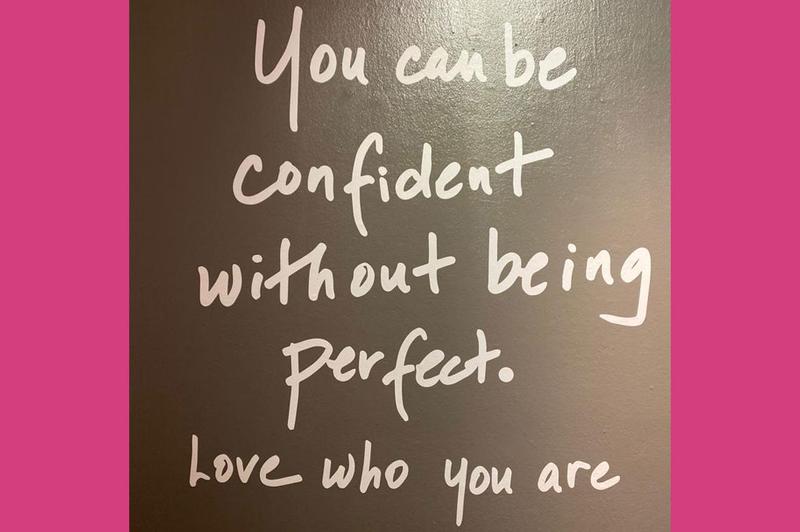 You can be
confident
without being
perfect.
Love who you are